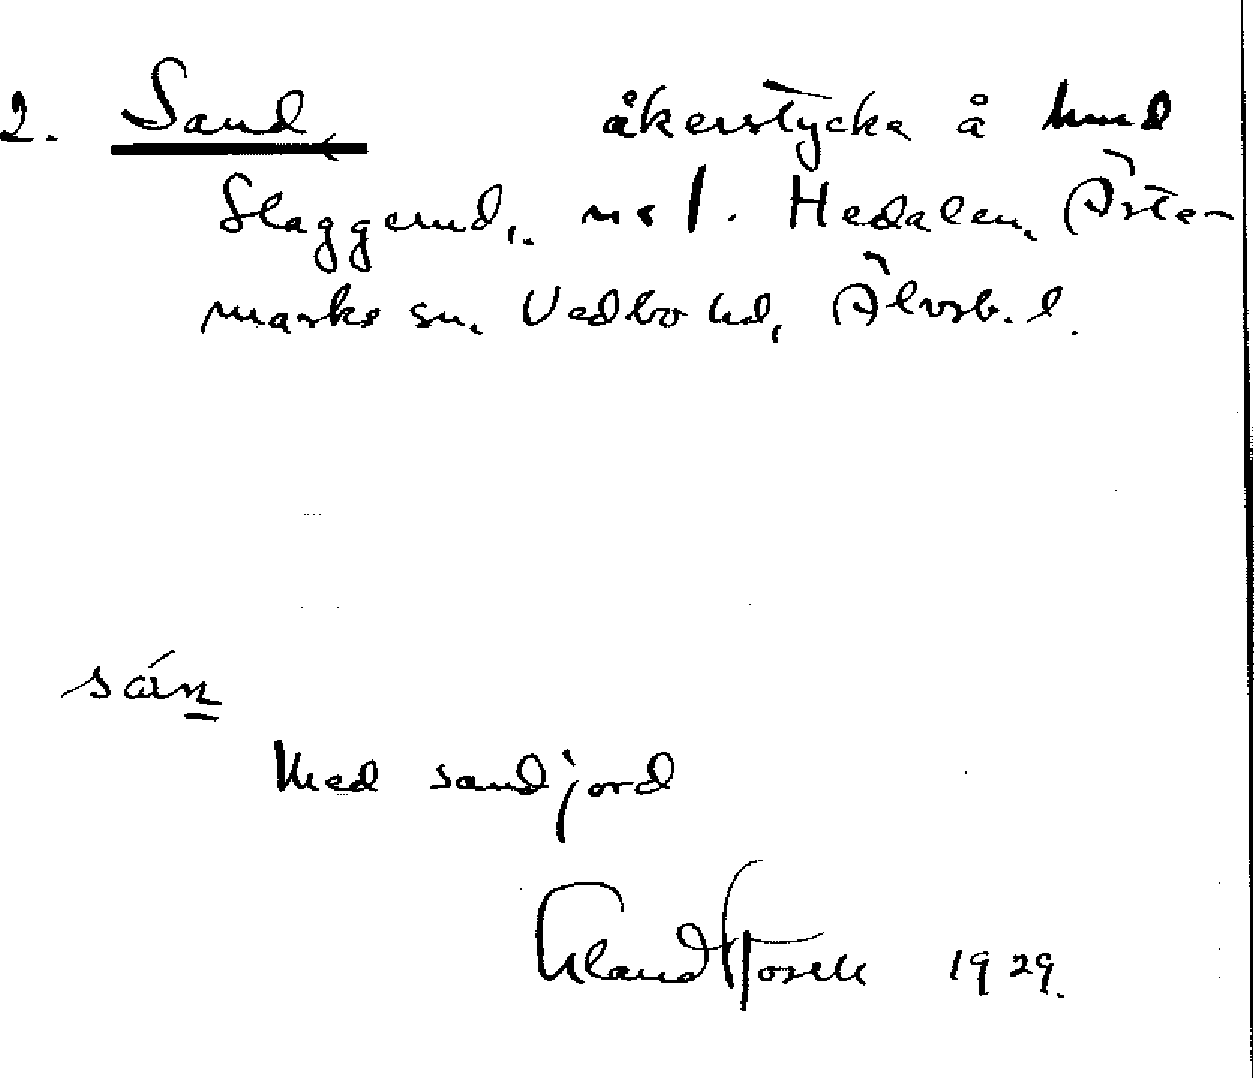 2. Sand, åkerstycke å lund
Slaggerud, nr 1. Hedalen, Ärte-
marks sn. Vedbo hd, Älvsb. l.
sán
Med sandjord
Eland Rosell 1929.